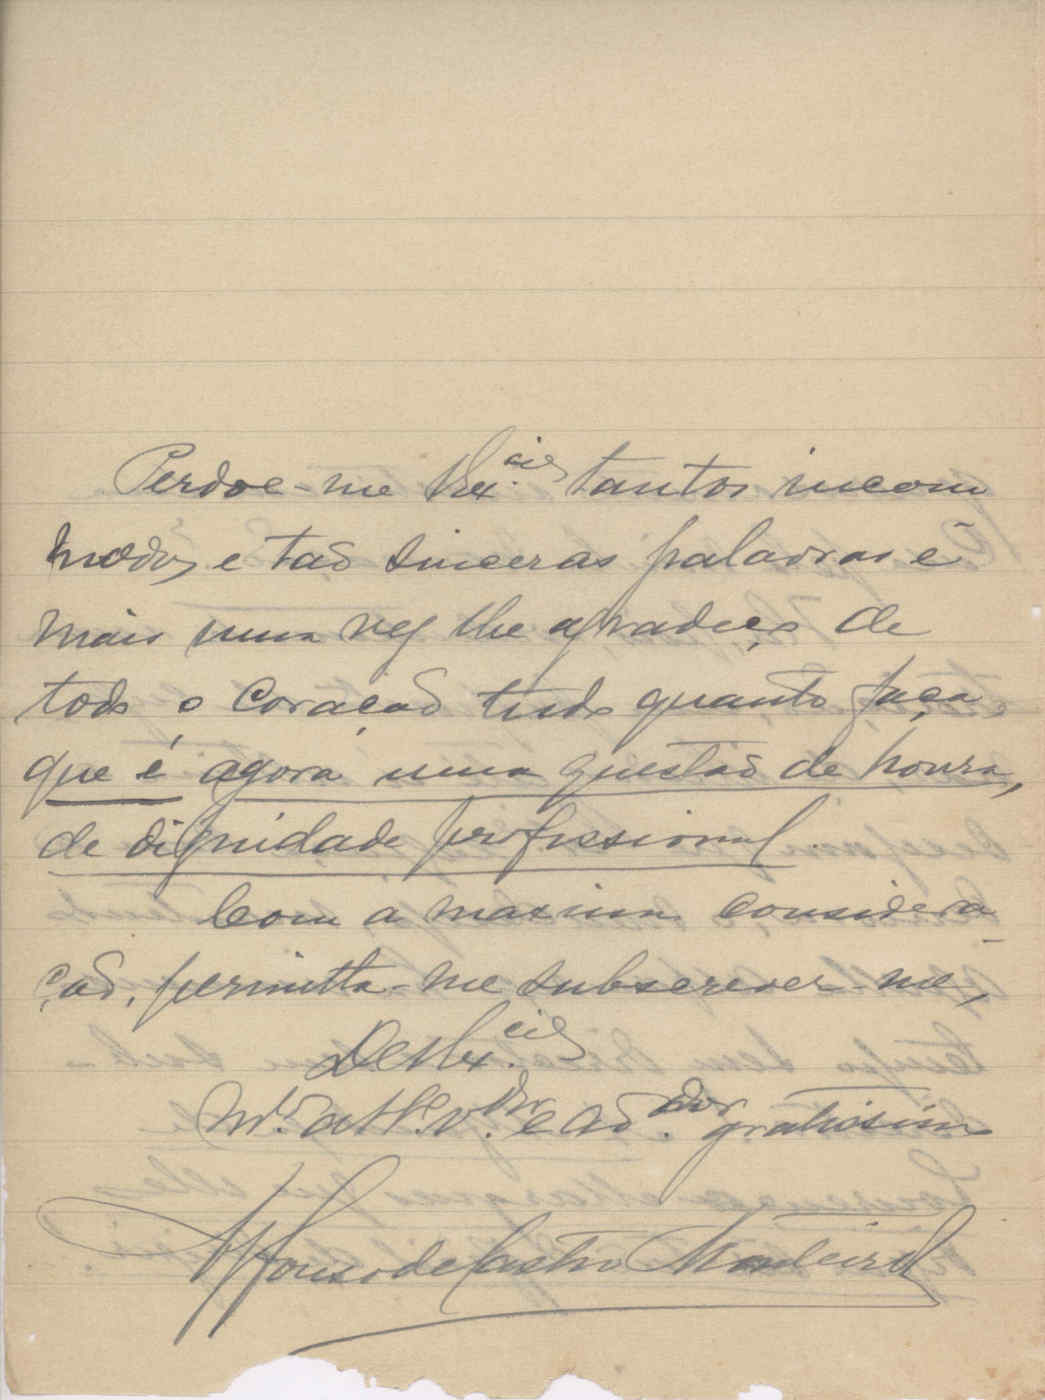 Perdoe-me V. Ex.cia tantos incom
modos e tão sinceras palavras e
mais uma vez lhe agradeço de
todo o coração tudo quanto faça,
que é agora uma questão de honra,
de dignidade profissional.
Com a maxima considera
ção, permitta-me subscrever-me,
De V. Ex.cia
M.to att.o v.dor e ad.dor gratissimo
Affonso de Castro Monteiro